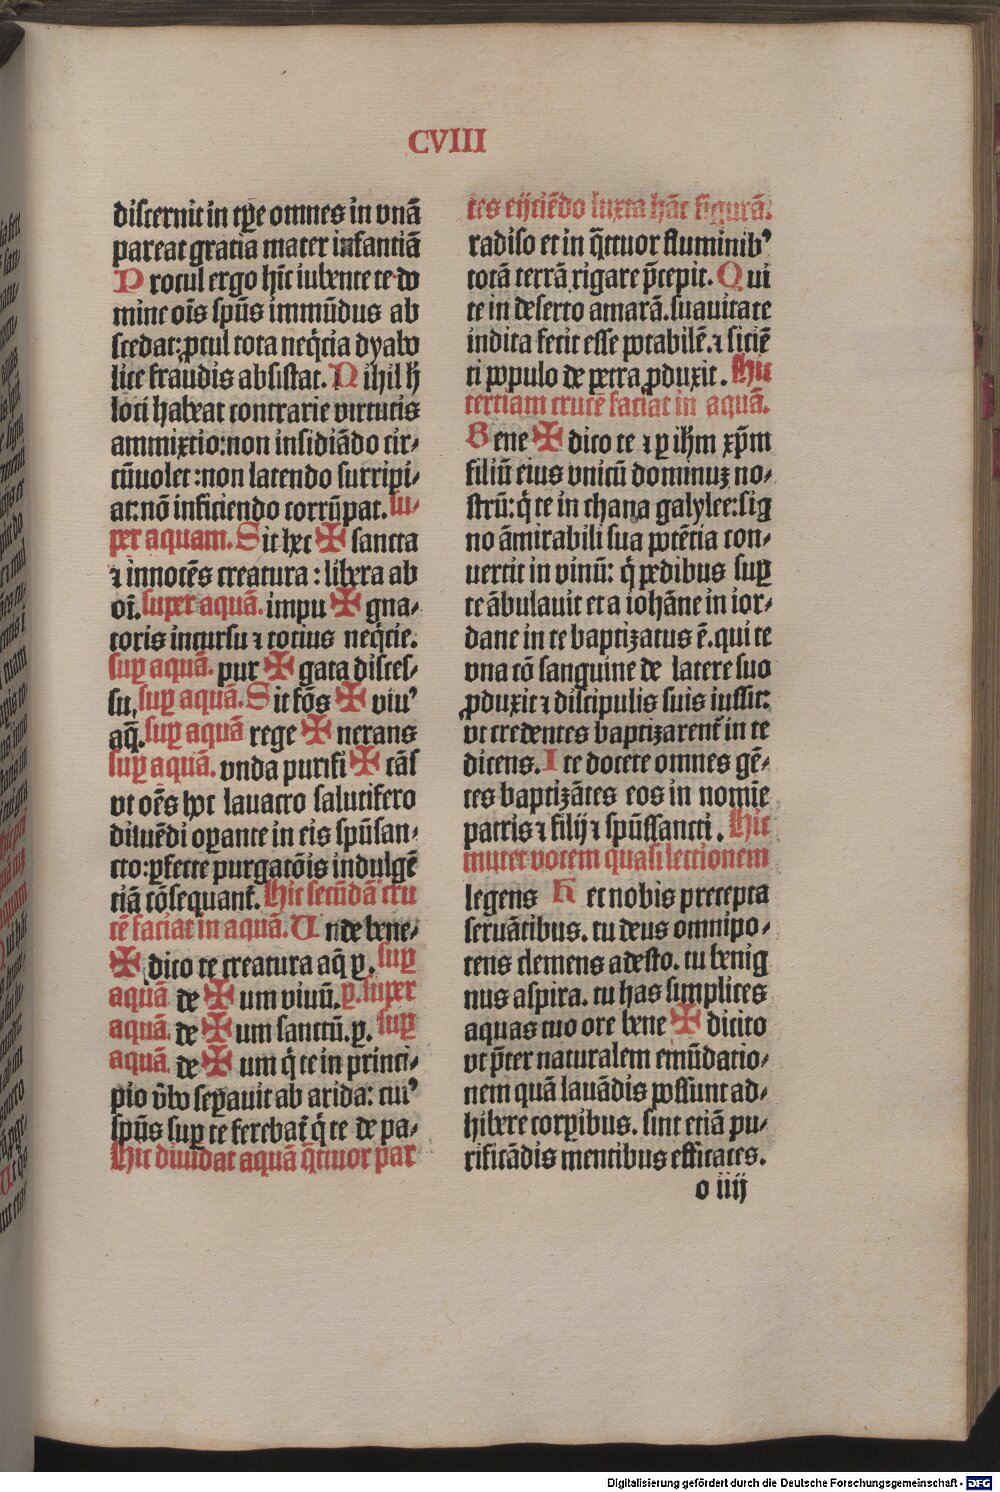 CVIII
discernit in tpe omnes in vnā
pareat gratia mater infantiā
Procul ergo hīc iubente te do
mine oīs spūs immūdus ab
scedat: ꝓcul tota neq̄cia dyabo
lice fraudis absistat. Nihil h̄
loci habeat contrarie virtutis
ammixtio: non insidiādo cir⸗
cūuolet: non latendo surripi⸗
at: nō inficiendo corrūpat. su⸗
per aquam. Sit hec ✠ sancta
⁊ innocēs creatura: libera ab
oī. super aquā. impu ✠ gna⸗
toris incursu ⁊ tocius neq̄cie.
suꝑ aquā. pur ✠ gata disces⸗
su, suꝑ aquā. Sit fōs ✠ viuꝰ
aq̄. suꝑ aquā rege ✠ nerans
suꝑ aquā. vnda purifi ✠ cās
vt oēs hoc lauacro salutifero
diluēdi oꝑante in eis spūsan⸗
cto: ꝑfecte purgatōis indulgē
tiā cōsequant᷑. Hic secūdā cru
cē faciat in aquā. Vnde bene⸗
✠ dico te creatura aq̄ ꝑ. suꝑ
aquā de ✠ um viuū. ꝑ. super
aquā. de ✠ um sanctū. ꝑ. suꝑ
aquā. de ✠ um q̇ te in princi⸗
pio v̄bo seꝑauit ab arida: cuiꝰ
spūs suꝑ te ferebat᷑ q̇ te de pa⸗
Hic diuidat aquā q̄ttuor par
tes eijciēdo iuxta hāc figurā.
radiso et in q̄ttuor fluminibꝰ
totā terrā rigare p̄cepit. Qui
te in deserto amarā. suauitate
indita fecit esse potabilē. ⁊ sitiē
ti populo de petra ꝓduxit. Hic
tertiam crucē faciat in aquā.
Bene ✠ dico te ⁊ ꝑ ihm̄ xp̄m
filiū eius vnicū dominuꝫ no⸗
strū: q̇ te in chana galylee: sig
no āmirabili sua potētia con⸗
uertit in vinū: q̇ pedibus suꝑ
te ābulauit et a iohāne in ior⸗
dane in te baptizatus ē. qui te
vna cō sanguine de latere suo
ꝓduxit ⁊ discipulis suis iussit:
vt credentes baptizarent᷑ in te
dicens. Ite docete omnes gē⸗
tes baptizātes eos in nomīe
patris ⁊ filij ⁊ spūssancti. Hic
mutet vocem quasi lectionem
legens Hec nobis precepta
seruātibus. tu deus omnipo⸗
tens clemens adesto. tu benig
nus aspira. tu has simplices
aquas tuo ore bene ✠ dicito
vt p̄ter naturalem emūdatio⸗
nem quā lauādis possunt ad⸗
hibere corꝑibus. sint etiā pu⸗
rificādis mentibus efficaces.
o iiij
Digitalisierung gefördert durch die Deutsche Forschungsgemeinschaft - DFG